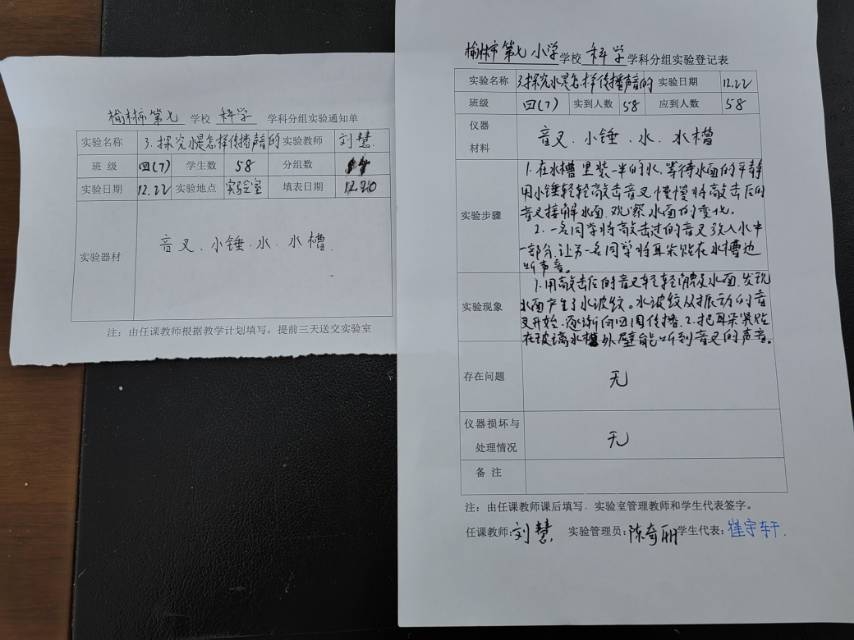 榆林市第七 学校 科学 学科分组实验通知单
实验名称 3.探究水是怎样传播声音的 实验教师 刘慧
班级 四(7) 学生数 58 分组数
实验日期 12.22 实验地点 实验室 填表日期 12.20
实验器材 音叉、小锤、水、水槽
注：由任课教师根据教学计划填写，提前三天送交实验室
榆林市第七小学 学校 科学 学科分组实验登记表
实验名称 3.探究水是怎样传播声音的 实验日期 12.22
班级 四(7) 实到人数 58 应到人数 58
仪器
材料
音叉、小锤、水、水槽
实验步骤
1.在水槽里装一半的水,等待水面的平静
用小锤轻轻敲击音叉慢慢将敲击后的
音叉接触水面,观察水面的变化。
2.一名同学将敲击过的音叉放入水中
一部分,让另一名同学将耳朵贴在水槽边
听声音。
实验现象
1.用敲击后的音叉轻轻触及水面,发现
水面产生了水波纹。水波纹从振动的音
叉开始,逐渐向四周传播.2.把耳朵紧贴
在玻璃水槽外壁能听到音叉的声音。
存在问题 无
仪器损坏与
处理情况
无
备注
注：由任课教师课后填写，实验室管理教师和学生代表签字。
任课教师:刘慧 实验管理员:陈奇丽 学生代表:崔宇轩